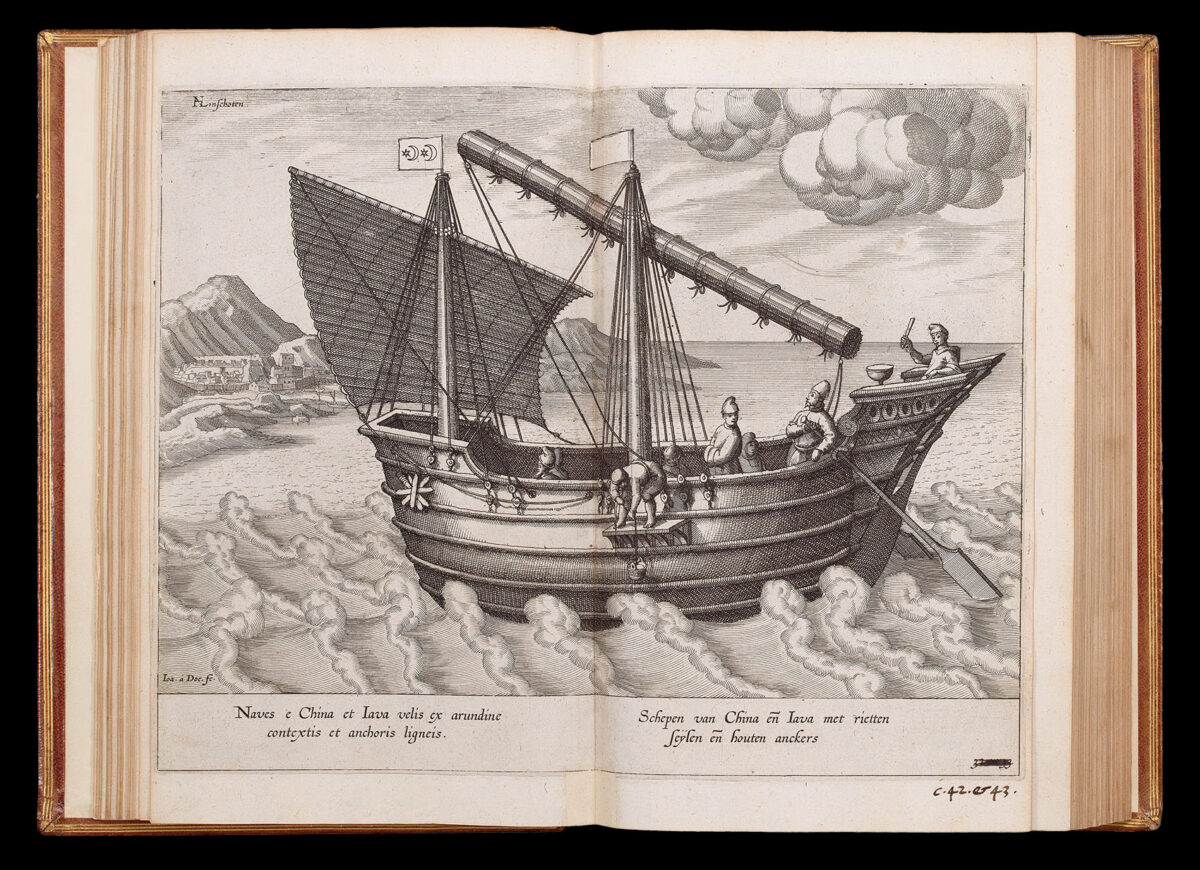 NLinschoten
Ioa. à Doe. fe.
Naves e China et Iava velis ex arundine
contextis et anchoris ligneis.
Schepen van China en̄ Iava met rietten
ſeÿlen en̄ houten anckers
c. 42. et 43.